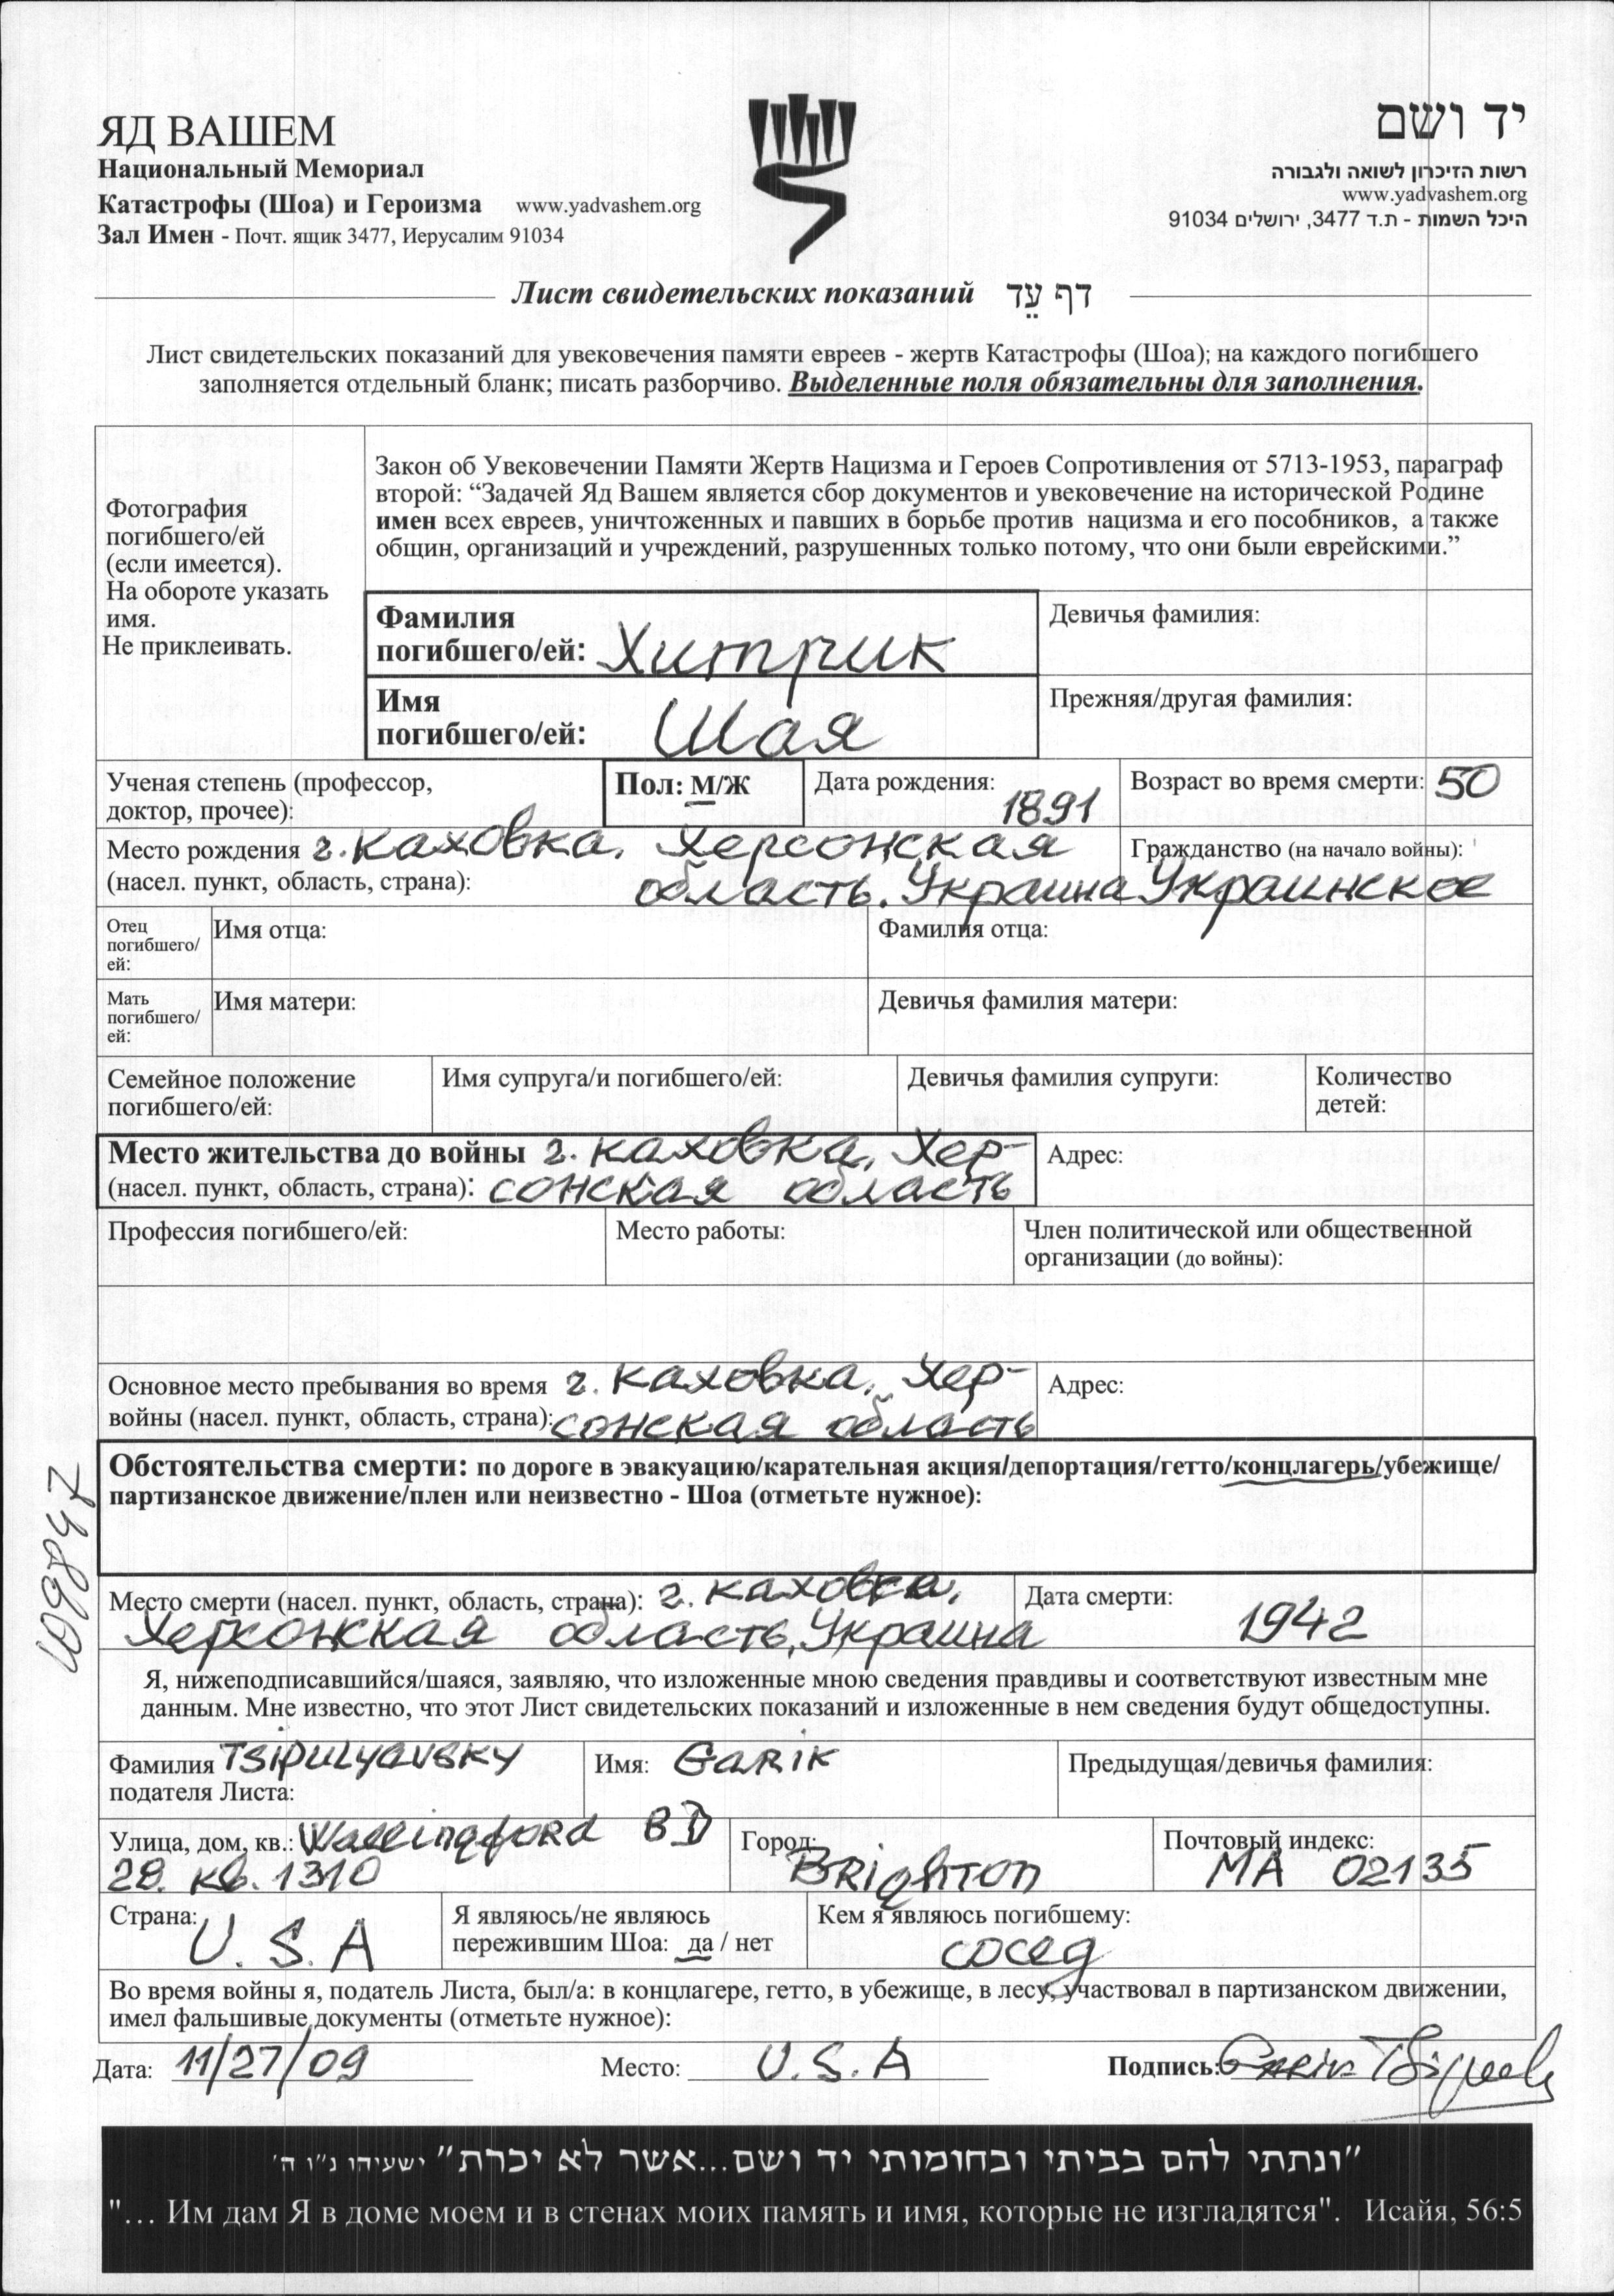 ЯД ВАШЕМ
Национальный Мемориал
Катастрофы (Шоа) и Героизма www.yadvashem.org
Зал Имен - Почт. ящик 3477, Иерусалим 91034
יד ושם
רשות הזיכרון לשואה ולגבורה
www.yadvashem.org
היכל השמות - ת.ד 3477, ירושלים 91034
Лист свидетельских показаний דף עֵד
Лист свидетельских показаний для увековечения памяти евреев - жертв Катастрофы (Шоа); на каждого погибшего
заполняется отдельный бланк; писать разборчиво. Выделенные поля обязательны для заполнения.
Фотография
погибшего/ей
(если имеется).
На обороте указать
имя.
Не приклеивать.
Закон об Увековечении Памяти Жертв Нацизма и Героев Сопротивления от 5713-1953, параграф
второй: “Задачей Яд Вашем является сбор документов и увековечение на исторической Родине
имен всех евреев, уничтоженных и павших в борьбе против нацизма и его пособников, а также
общин, организаций и учреждений, разрушенных только потому, что они были еврейскими.”
Фамилия
погибшего/ей: Хитрик
Девичья фамилия:
Имя
погибшего/ей: Шая
Прежняя/другая фамилия:
Ученая степень (профессор,
доктор, прочее):
Пол: М/Ж
Дата рождения:
1891
Возраст во время смерти: 50
Место рождения г. Каховка, Херсонская
(насел. пункт, область, страна): область. Украина
Гражданство (на начало войны):
Украинское
Отец
погибшего/
ей:
Имя отца:
Фамилия отца:
Мать
погибшего/
ей:
Имя матери:
Девичья фамилия матери:
Семейное положение
погибшего/ей:
Имя супруга/и погибшего/ей:
Девичья фамилия супруги:
Количество
детей:
Место жительства до войны г. Каховка, Хер-
(насел. пункт, область, страна): сонская область
Адрес:
Профессия погибшего/ей:
Место работы:
Член политической или общественной
организации (до войны):
Основное место пребывания во время г. Каховка, Хер-
войны (насел. пункт, область, страна): сонская область
Адрес:
Обстоятельства смерти: по дороге в эвакуацию/карательная акция/депортация/гетто/концлагерь/убежище/
партизанское движение/плен или неизвестно - Шоа (отметьте нужное):
109847
Место смерти (насел. пункт, область, страна): г. Каховка,
Херсонская область, Украина
Дата смерти:
1942
Я, нижеподписавшийся/шаяся, заявляю, что изложенные мною сведения правдивы и соответствуют известным мне
данным. Мне известно, что этот Лист свидетельских показаний и изложенные в нем сведения будут общедоступны.
Фамилия TSIPULYAVSKY
податeля Листа:
Имя: GARIK
Предыдущая/девичья фамилия:
Улица, дом, кв.: Wallingford BD
28. кв. 1310
Город:
BRIGHTON
Почтовый индекс:
MA 02135
Страна:
U.S.A
Я являюсь/не являюсь
пережившим Шоа: да / нет
Кем я являюсь погибшему:
сосед
Во время войны я, податель Листа, был/а: в концлагере, гетто, в убежище, в лесу, участвовал в партизанском движении,
имел фальшивые документы (отметьте нужное):
Дата: 11/27/09 Место: U.S.A Подпись:
״ונתתי להם בביתי ובחומותי יד ושם...אשר לא יכרת״ ישעיהו נ״ו ה׳
"... Им дам Я в доме моем и в стенах моих память и имя, которые не изгладятся". Исайя, 56:5